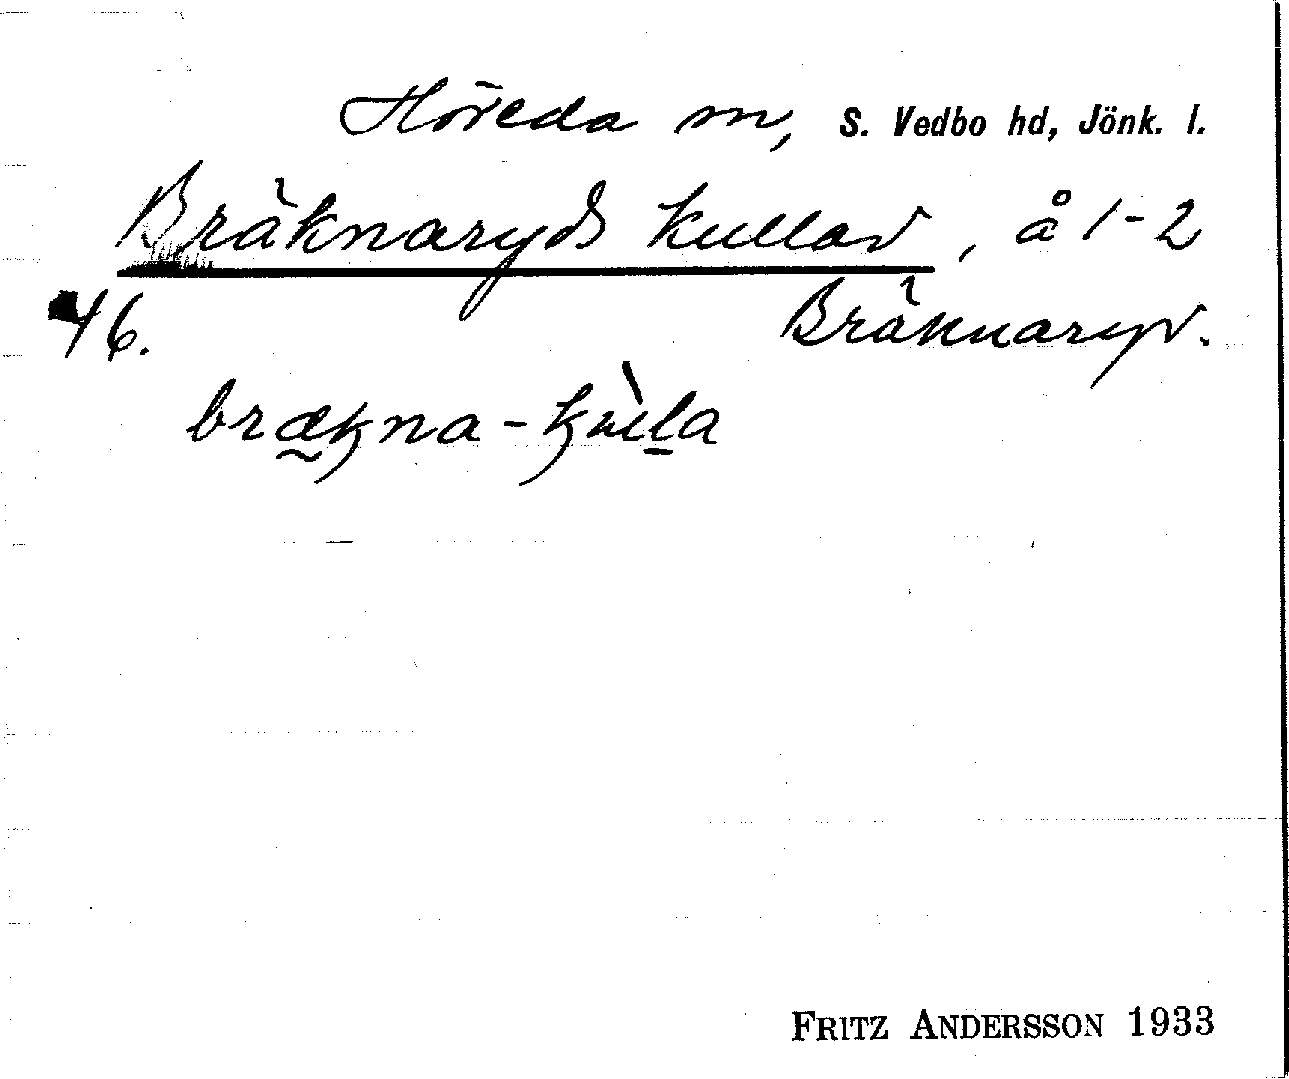 Höreda sn, S. Vedbo hd, Jönk. l.
Bräknaryds kullar, å 1-2
46. Bräknaryd.
brækna-kùlla
FRITZ ANDERSSON 1933